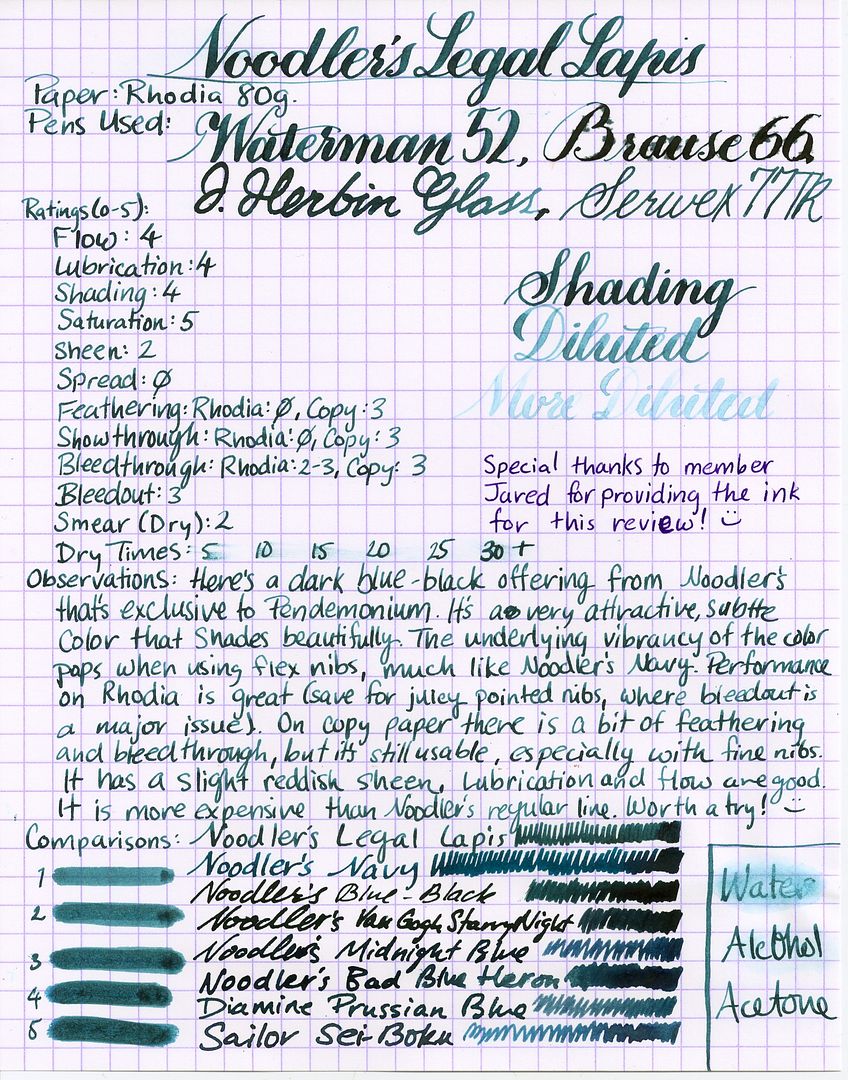 Noodler's Legal Lapis
Paper: Rhodia 80g.
Pens Used:
Waterman 52, Brause 66,
J. Herbin Glass, Serwex 77TR
Ratings (0-5):
Flow: 4
Lubrication: 4
Shading: 4
Saturation: 5
Sheen: 2
Spread: Ø
Feathering: Rhodia: Ø, Copy: 3
Showthrough: Rhodia: Ø, Copy: 3
Bleedthrough: Rhodia: 2-3, Copy: 3
Bleedout: 3
Smear (Dry): 2
Dry Times: 5 10 15 20 25 30+
Shading
Diluted
More Diluted
Special thanks to member
Jared for providing the ink
for this review! :)
Observations: Here's a dark blue-black offering from Noodler's
that's exclusive to Pendemonium. It's a very attractive, subtle
color that shades beautifully. The underlying vibrancy of the color
pops when using flex nibs, much like Noodler's Navy. Performance
on Rhodia is great (save for juicy pointed nibs, where bleedout is
a major issue). On copy paper there is a bit of feathering
and bleedthrough, but it's still usable, especially with fine nibs.
It has a slight reddish sheen. Lubrication and flow are good.
It is more expensive than Noodler's regular line. Worth a try! :)
Comparisons: Noodler's Legal Lapis
Noodler's Navy
Noodler's Blue-Black
Noodler's Van Gogh Starry Night
Noodler's Midnight Blue
Noodler's Bad Blue Heron
Diamine Prussian Blue
Sailor Sei-Boku
1
2
3
4
5
Water
Alcohol
Acetone